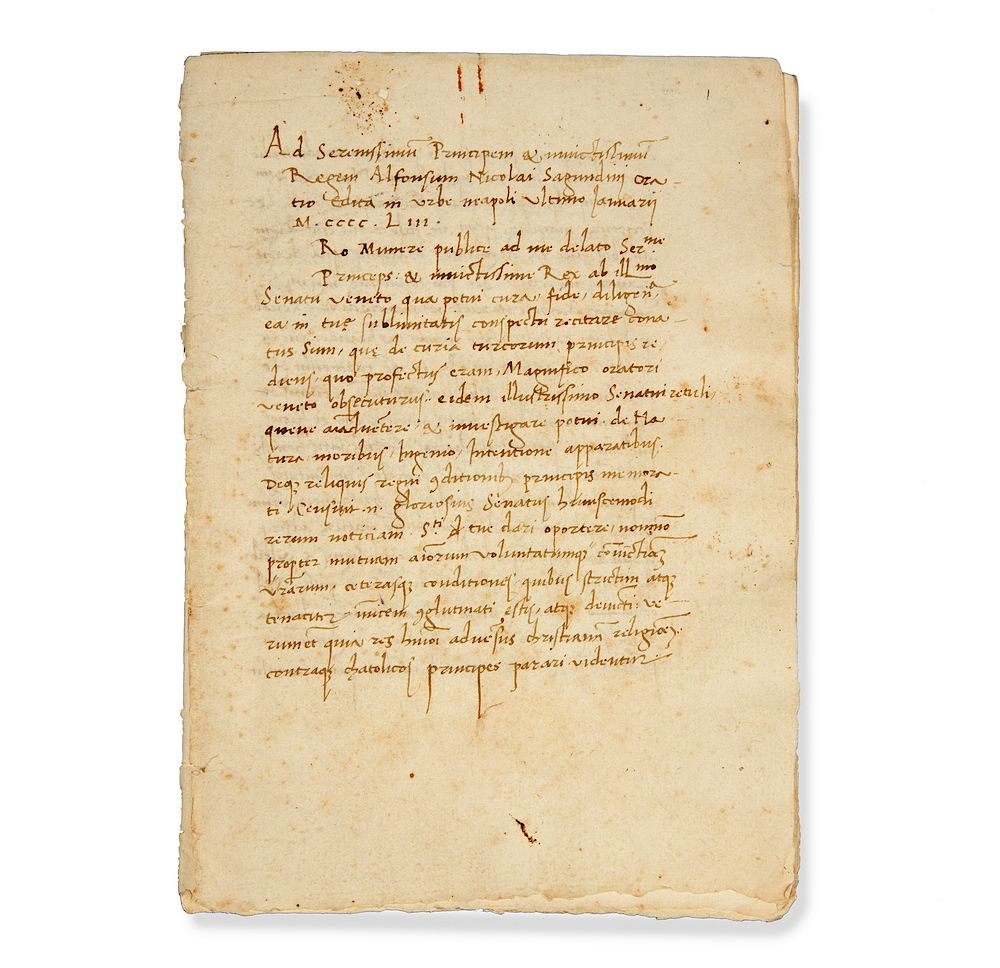 Ad Serenissimũ Principem & invictissimũ
Regem Alfonsum Nicolai Sagundini ora-
tio Edita in urbe neapoli Ultimo Januarii
M. CCCC. L III.
Ro Munere publice ad me delato Ser.me
Princeps: & invictissime Rex ab ill.mo
Senatu veneto qua potui cura, fide, diligen.a
ea in tuę sublimitatis conspectu recitare cona-
tus sum, quę de curia turcorum principis re-
diens, quo profectus eram, Magnifico oratori
veneto obsecuturus. eidem illustrissimo Senatui retuli,
queve aĩadvertere, & investigare potui. de Na
tura moribus, Ingenio, Intentione apparatibus.
Deq; reliquis regni ꝯditionib; principis memora-
ti. Censuit .n. gloriosus Senatus huiuscemodi
rerum noticiam. S.ti tue dari oportere, nõmõ
propter mutuam aĩorum voluntatumq; coniũctiõẽ
vr̃arum. ceterasq; conditiones quibus strictim atq;
tenaciter invicem ꝯglutinati estis, atq; deuincti. ve-
rumet quia res hmõi adversus christianã religiõẽ.
contraq; chatolicos principes parari videntur.